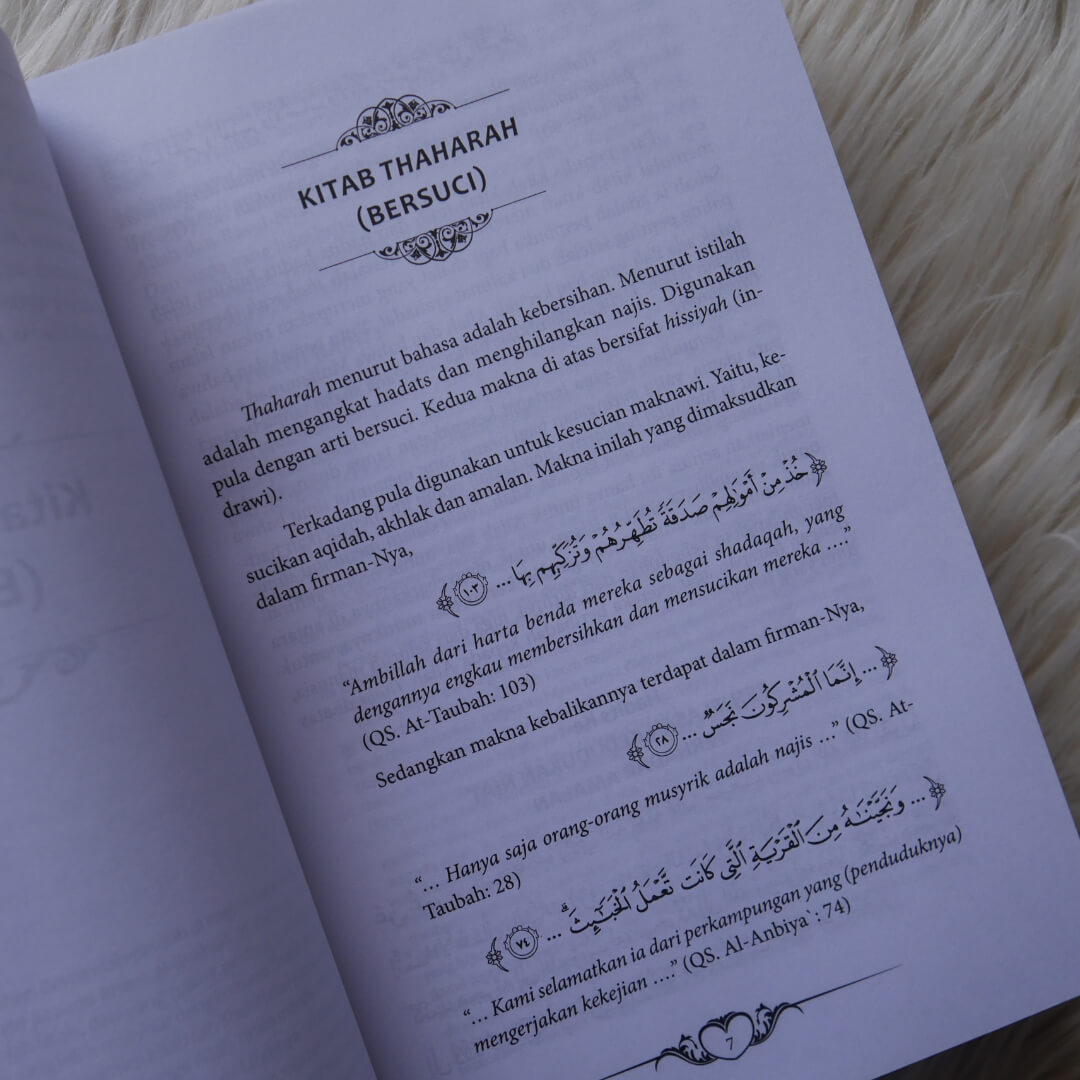 KITAB THAHARAH
(BERSUCI)
Thaharah menurut bahasa adalah kebersihan. Menurut istilah
adalah mengangkat hadats dan menghilangkan najis. Digunakan
pula dengan arti bersuci. Kedua makna di atas bersifat hissiyah (in-
drawi).
Terkadang pula digunakan untuk kesucian maknawi. Yaitu, ke-
sucikan aqidah, akhlak dan amalan. Makna inilah yang dimaksudkan
dalam firman-Nya,
﴿خُذْ مِنْ أَمْوَٰلِهِمْ صَدَقَةً تُطَهِّرُهُمْ وَتُزَكِّيهِم بِهَا ... ١٠٣﴾
“Ambillah dari harta benda mereka sebagai shadaqah, yang
dengannya engkau membersihkan dan mensucikan mereka ….”
(QS. At-Taubah: 103)
Sedangkan makna kebalikannya terdapat dalam firman-Nya,
﴿... إِنَّمَا ٱلْمُشْرِكُونَ نَجَسٌ ... ٢٨﴾
“… Hanya saja orang-orang musyrik adalah najis …” (QS. At-
Taubah: 28)
﴿... وَنَجَّيْنَٰهُ مِنَ ٱلْقَرْيَةِ ٱلَّتِى كَانَت تَّعْمَلُ ٱلْخَبَٰٓئِثَ ۗ ... ٧٤﴾
“… Kami selamatkan ia dari perkampungan yang (penduduknya)
mengerjakan kekejian ….” (QS. Al-Anbiya`: 74)
7